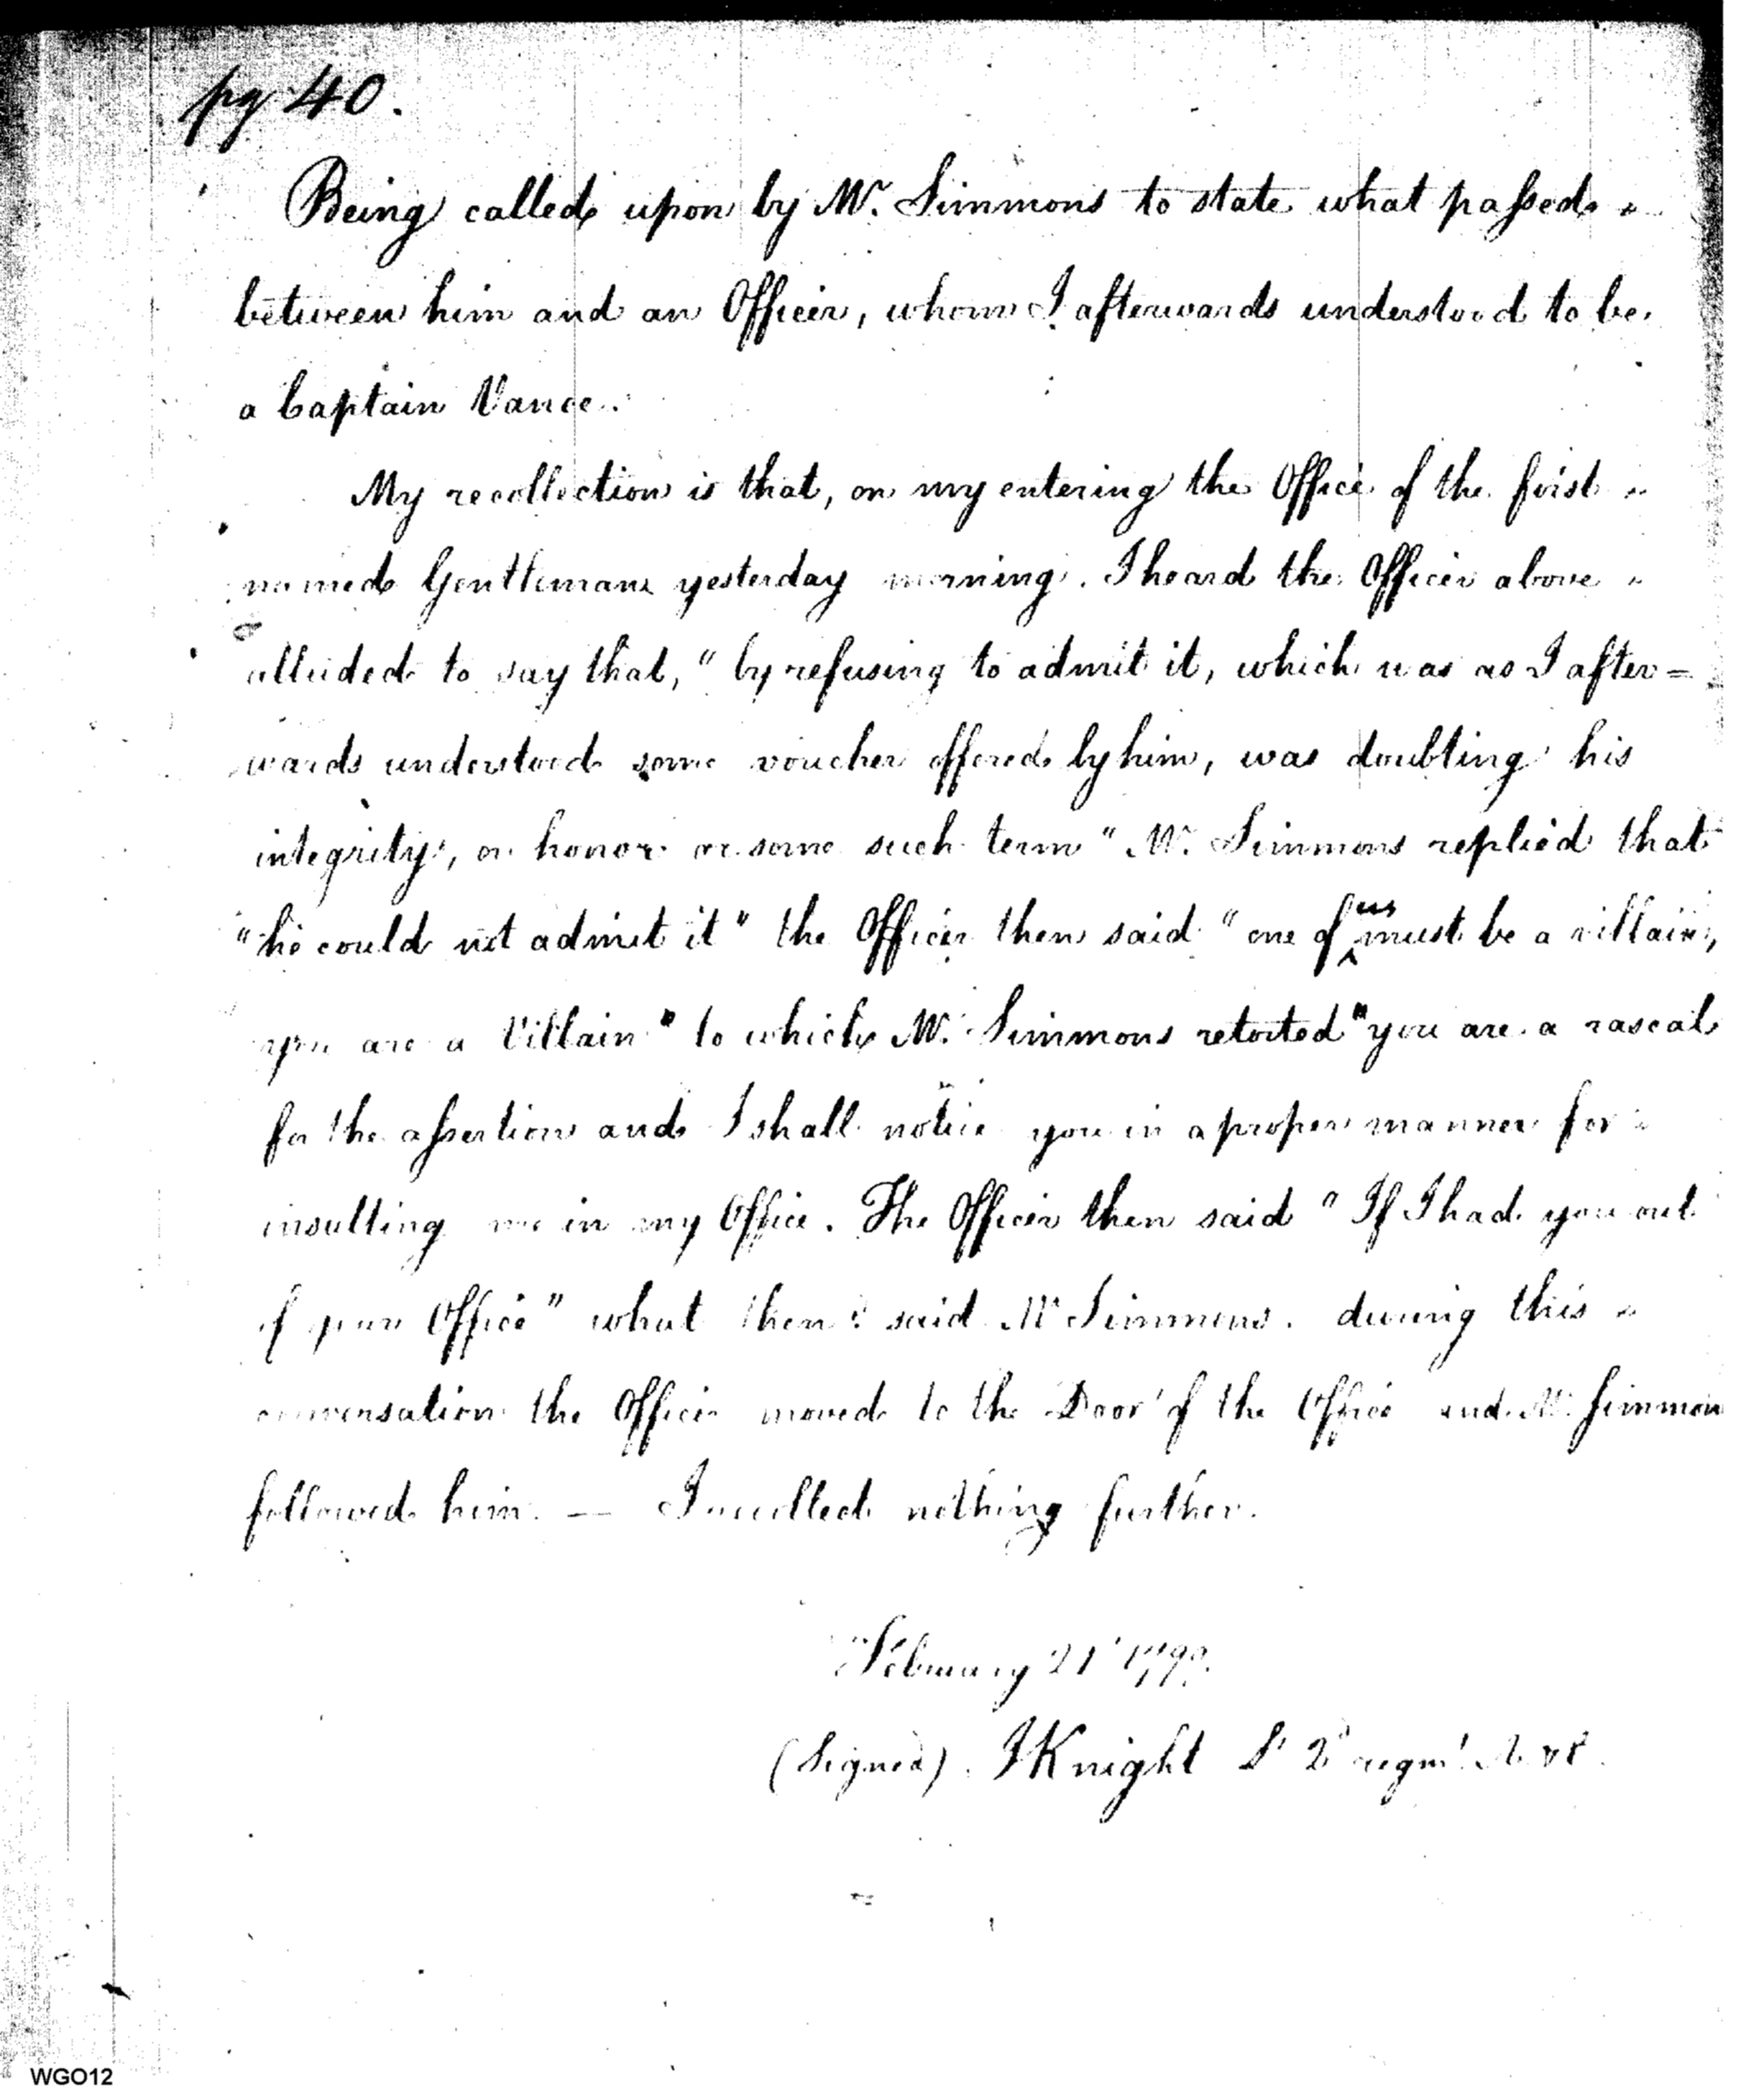 pg 40.
Being called upon by Mr. Simmons to state what passed
between him and an Officer, whom I afterwards understood to be
a Captain Vance.
My recollection is that, on my entering the Office of the first
named Gentleman yesterday morning. I heard the Officer above
alluded to say that, "by refusing to admit it, which was as I after=
wards understood some voucher offered by him, was doubting his
integrity, or honor or some such term" Mr. Simmons replied that
"he could not admit it" the Officer then said "one of us must be a villain,
you are a Villain" to which Mr. Simmons retorted "you are a rascal
for the assertion and I shall notice you in a proper manner for
insulting me in my Office. The Officer then said "If I had you out
of your Office" what then? said Mr Simmons. during this
conversation the Officer moved to the Door of the Office and Mr. Simmon
followed him. — I recollect nothing further.
February 21
(Signed). J Knight Lt 2d regmt
WGO12